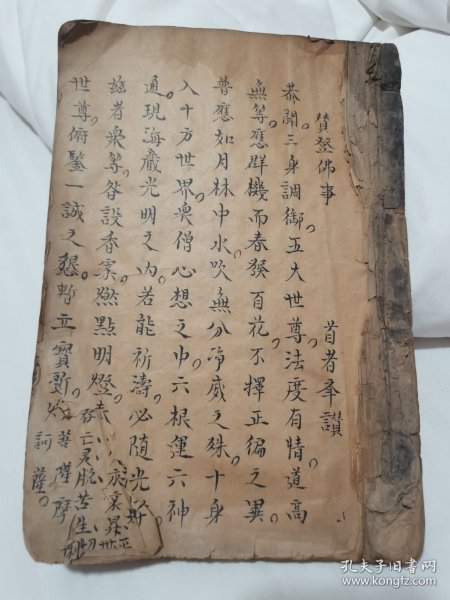 贊燈佛事 首者奉讃
恭聞三身調御。五大世尊。法度有情。道高
無等。應群機而春發百花。不擇正偏之異。
普應如月林中水。吹無分 歲之殊。十身
入十方世界。衆僧心想之中。六根運六神
通。現海藏光明之内。若能祈濤。必随光
兹者衆等。各設香案。燃點明燈。
世尊。俯鑒一誠之懇。暫立寶
存亡灵脱苦生
菩薩摩
訶薩。
孔夫子旧书网
www.kongfz.com